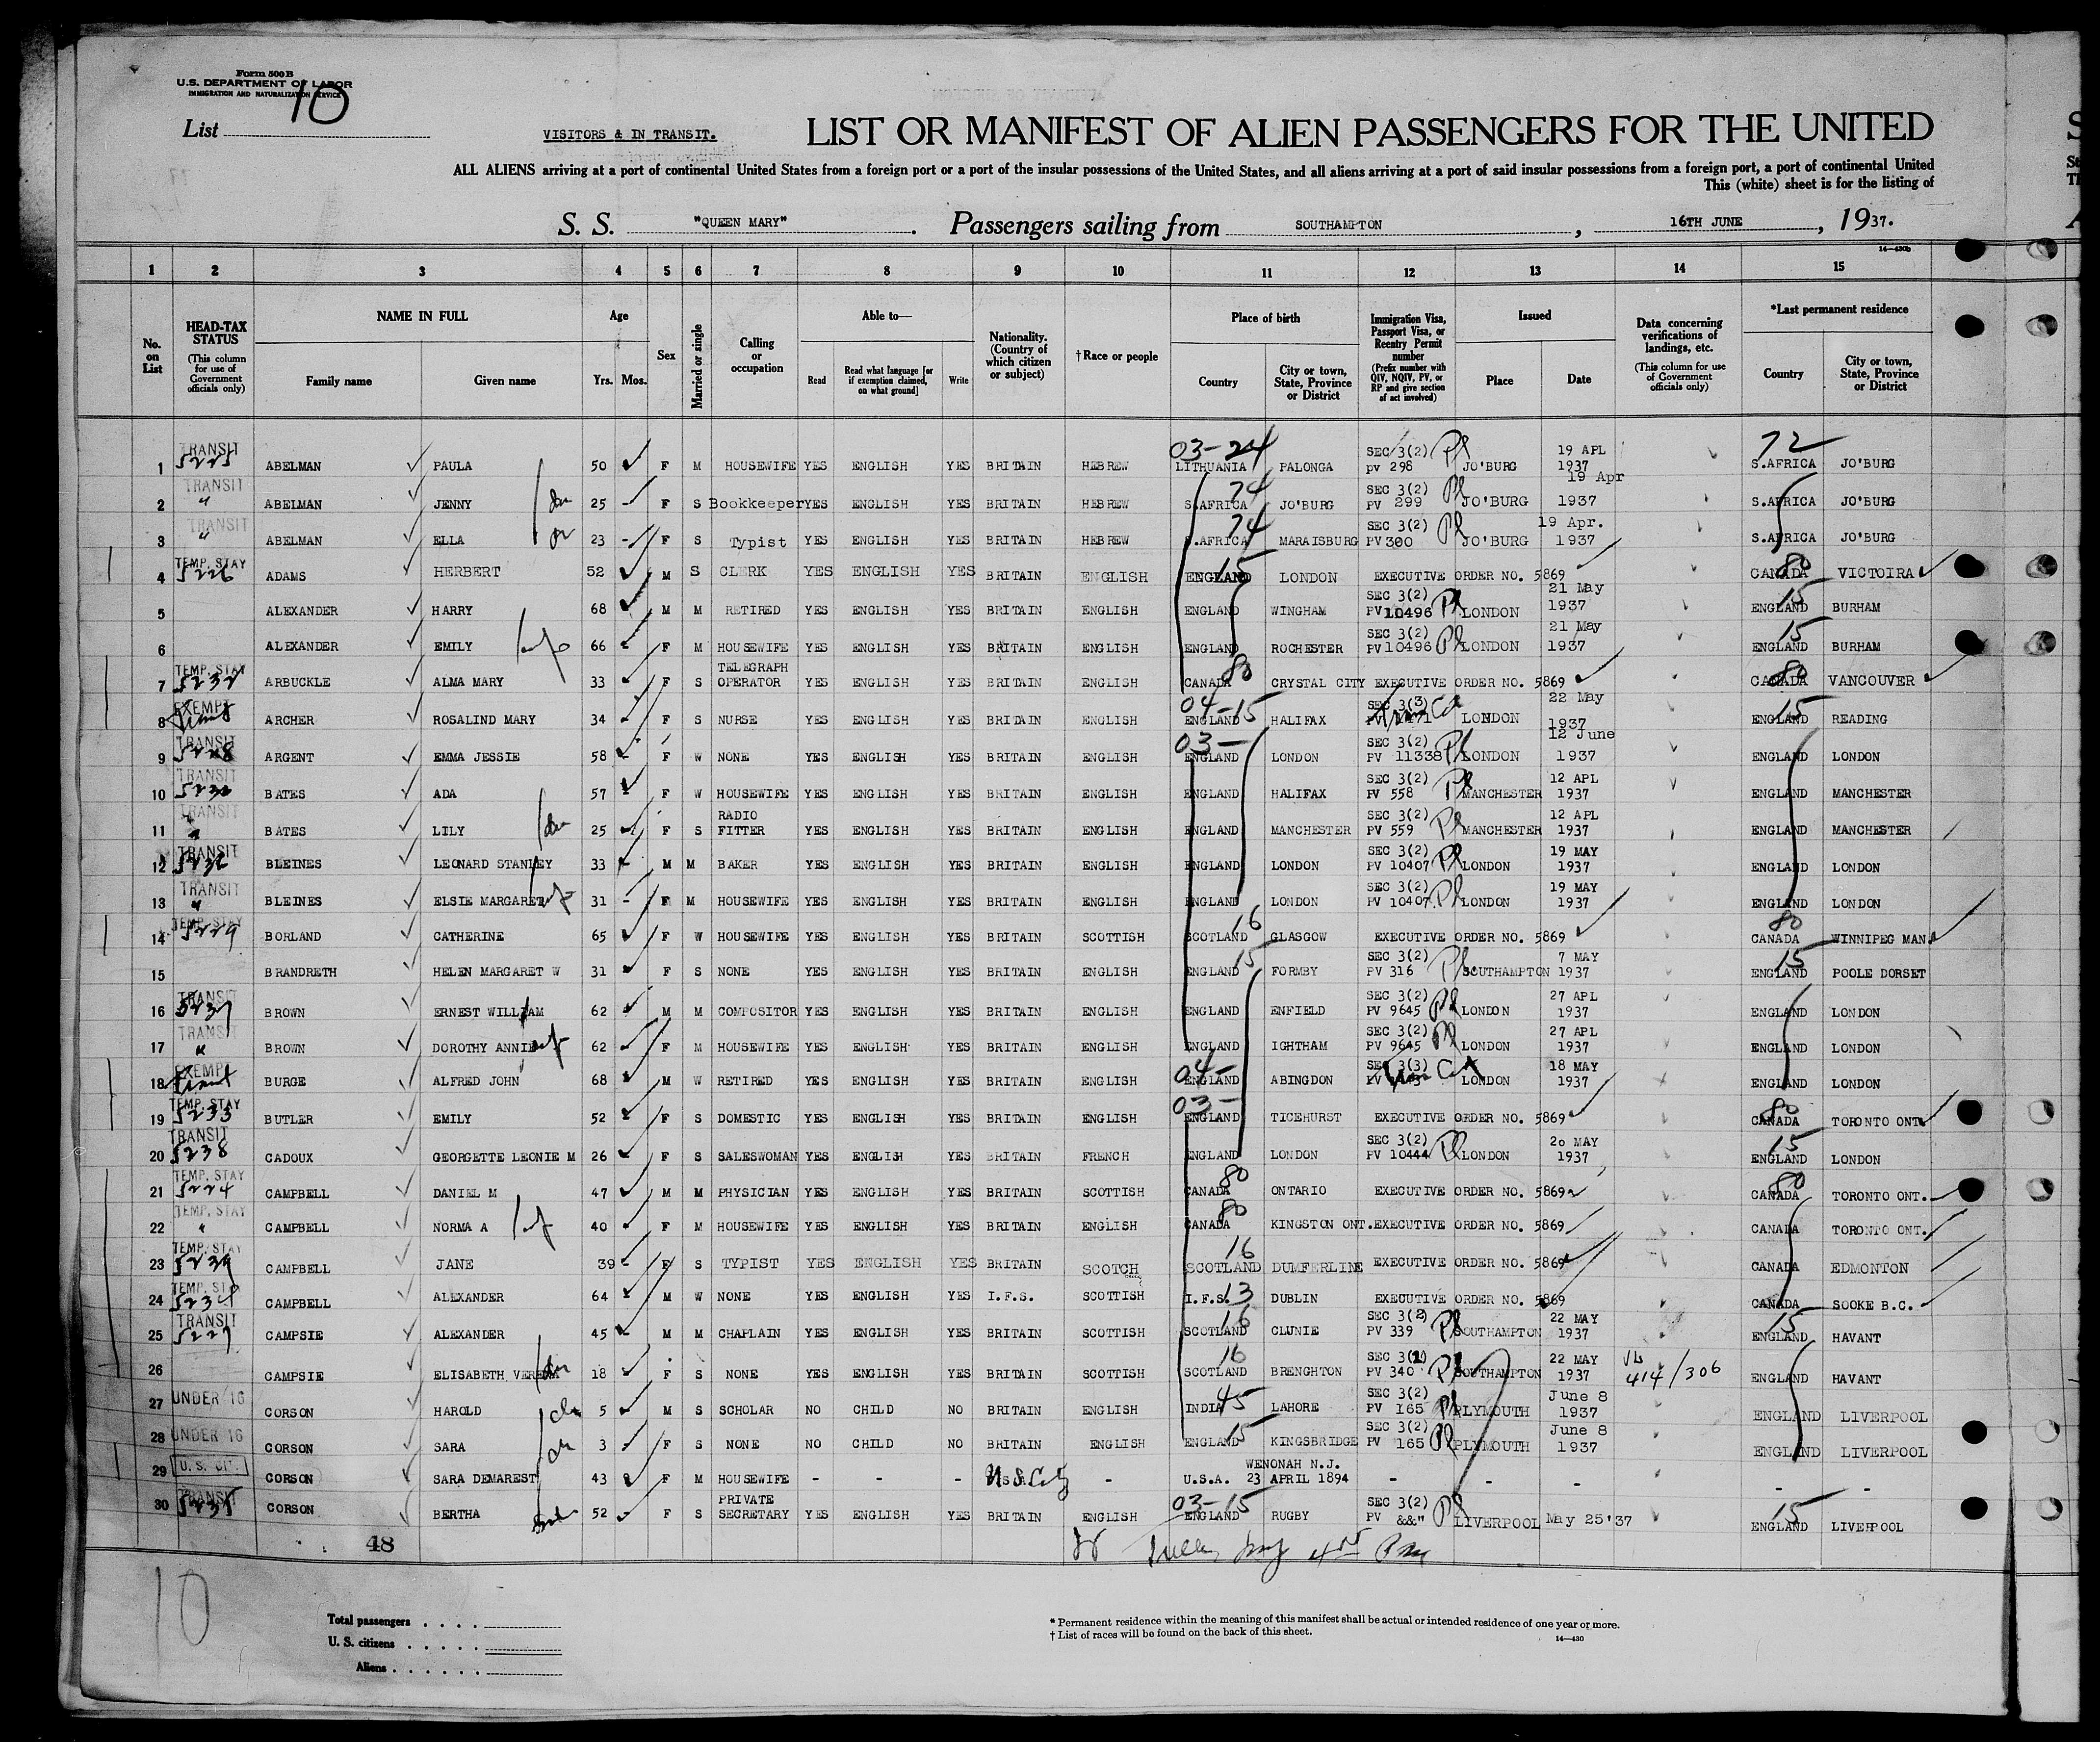 Form 500 B
U.S. DEPARTMENT OF LABOR
IMMIGRATION AND NATURALIZATION SERVICE
List 10
VISITORS & IN TRANSIT.
LIST OR MANIFEST OF ALIEN PASSENGERS FOR THE UNITED
ALL ALIENS arriving at a port of continental United States from a foreign port or a port of the insular possessions of the United States, and all aliens arriving at a port of said insular possessions from a foreign port, a port of continental United
This (white) sheet is for the listing of
S. S. "QUEEN MARY". Passengers sailing from SOUTHAMPTON, 16TH JUNE, 1937.
14—430b
1 2 3 4 5 6 7 8 9 10 11 12 13 14 15
No. on List
HEAD-TAX STATUS (This column for use of Government officials only)
NAME IN FULL Family name Given name
Age Yrs. Mos.
Sex
Married or single
Calling or occupation
Able to— Read Read what language [or if exemption claimed, on what ground] Write
Nationality. (Country of which citizen or subject)
†Race or people
Place of birth Country City or town, State, Province or District
Immigration Visa, Passport Visa, or Reentry Permit number (Prefix number with QIV, NQIV, PV, or RP and give section of act involved)
Issued Place Date
Data concerning verifications of landings, etc. (This column for use of Government officials only)
*Last permanent residence Country City or town, State, Province or District
1 TRANSIT 5225 ABELMAN PAULA 50 F M HOUSEWIFE YES ENGLISH YES BRITAIN HEBREW 03-24 LITHUANIA PALONGA SEC 3(2) PV 298 JO'BURG 19 APL 1937 72 S.AFRICA JO'BURG
2 TRANSIT " ABELMAN JENNY 25 F S Bookkeeper YES ENGLISH YES BRITAIN HEBREW 74 S.AFRICA JO'BURG SEC 3(2) PV 299 JO'BURG 19 Apr 1937 S.AFRICA JO'BURG
3 TRANSIT " ABELMAN ELLA 23 F S Typist YES ENGLISH YES BRITAIN HEBREW 74 S.AFRICA MARAISBURG SEC 3(2) PV 300 JO'BURG 19 Apr. 1937 S.AFRICA JO'BURG
4 TEMP. STAY 5226 ADAMS HERBERT 52 M S CLERK YES ENGLISH YES BRITAIN ENGLISH 15 ENGLAND LONDON EXECUTIVE ORDER NO. 5869 80 CANADA VICTOIRA
5 ALEXANDER HARRY 68 M M RETIRED YES ENGLISH YES BRITAIN ENGLISH ENGLAND WINGHAM SEC 3(2) PV 10496 LONDON 21 May 1937 15 ENGLAND BURHAM
6 ALEXANDER EMILY 66 F M HOUSEWIFE YES ENGLISH YES BRITAIN ENGLISH ENGLAND ROCHESTER SEC 3(2) PV 10496 LONDON 21 May 1937 15 ENGLAND BURHAM
7 TEMP. STAY 5232 ARBUCKLE ALMA MARY 33 F S TELEGRAPH OPERATOR YES ENGLISH YES BRITAIN ENGLISH 80 CANADA CRYSTAL CITY EXECUTIVE ORDER NO. 5869 80 CANADA VANCOUVER
8 EXEMPT ARCHER ROSALIND MARY 34 F S NURSE YES ENGLISH YES BRITAIN ENGLISH 04-15 ENGLAND HALIFAX SEC 3(3) LONDON 22 May 1937 15 ENGLAND READING
9 TRANSIT 5228 ARGENT EMMA JESSIE 58 F W NONE YES ENGLISH YES BRITAIN ENGLISH 03- ENGLAND LONDON SEC 3(2) PV 11338 LONDON 12 June 1937 ENGLAND LONDON
10 TRANSIT BATES ADA 57 F W HOUSEWIFE YES ENGLISH YES BRITAIN ENGLISH ENGLAND HALIFAX SEC 3(2) PV 558 MANCHESTER 12 APL 1937 ENGLAND MANCHESTER
11 TRANSIT " BATES LILY 25 F S RADIO FITTER YES ENGLISH YES BRITAIN ENGLISH ENGLAND MANCHESTER SEC 3(2) PV 559 MANCHESTER 12 APL 1937 ENGLAND MANCHESTER
12 TRANSIT BLEINES LEONARD STANLEY 33 M M BAKER YES ENGLISH YES BRITAIN ENGLISH ENGLAND LONDON SEC 3(2) PV 10407 LONDON 19 MAY 1937 ENGLAND LONDON
13 TRANSIT " BLEINES ELSIE MARGARET 31 F M HOUSEWIFE YES ENGLISH YES BRITAIN ENGLISH ENGLAND LONDON SEC 3(2) PV 10407 LONDON 19 MAY 1937 ENGLAND LONDON
14 TEMP. STAY 5229 BORLAND CATHERINE 65 F W HOUSEWIFE YES ENGLISH YES BRITAIN SCOTTISH 16 SCOTLAND GLASGOW EXECUTIVE ORDER NO. 5869 80 CANADA WINNIPEG MAN
15 BRANDRETH HELEN MARGARET W 31 F S NONE YES ENGLISH YES BRITAIN ENGLISH 15 ENGLAND FORMBY SEC 3(2) PV 316 SOUTHAMPTON 7 MAY 1937 15 ENGLAND POOLE DORSET
16 TRANSIT 5237 BROWN ERNEST WILLIAM 62 M M COMPOSITOR YES ENGLISH YES BRITAIN ENGLISH ENGLAND ENFIELD SEC 3(2) PV 9645 LONDON 27 APL 1937 ENGLAND LONDON
17 TRANSIT " BROWN DOROTHY ANNIE 62 F M HOUSEWIFE YES ENGLISH YES BRITAIN ENGLISH ENGLAND IGHTHAM SEC 3(2) PV 9645 LONDON 27 APL 1937 ENGLAND LONDON
18 EXEMPT BURGE ALFRED JOHN 68 M W RETIRED YES ENGLISH YES BRITAIN ENGLISH 04- ENGLAND ABINGDON SEC 3(3) LONDON 18 MAY 1937 ENGLAND LONDON
19 TEMP. STAY 5233 BUTLER EMILY 52 F S DOMESTIC YES ENGLISH YES BRITAIN ENGLISH 03- ENGLAND TICEHURST EXECUTIVE ORDER NO. 5869 80 CANADA TORONTO ONT
20 TRANSIT 5238 CADOUX GEORGETTE LEONIE M 26 F S SALESWOMAN YES ENGLISH YES BRITAIN FRENCH ENGLAND LONDON SEC 3(2) PV 10444 LONDON 20 MAY 1937 15 ENGLAND LONDON
21 TEMP. STAY 5224 CAMPBELL DANIEL M 47 M M PHYSICIAN YES ENGLISH YES BRITAIN SCOTTISH 80 CANADA ONTARIO EXECUTIVE ORDER NO. 5869 80 CANADA TORONTO ONT.
22 TEMP. STAY " CAMPBELL NORMA A 40 F M HOUSEWIFE YES ENGLISH YES BRITAIN ENGLISH 80 CANADA KINGSTON ONT. EXECUTIVE ORDER NO. 5869 CANADA TORONTO ONT.
23 TEMP. STAY 5239 CAMPBELL JANE 39 F S TYPIST YES ENGLISH YES BRITAIN SCOTCH 16 SCOTLAND DUMFERLINE EXECUTIVE ORDER NO. 5869 CANADA EDMONTON
24 TEMP. STAY CAMPBELL ALEXANDER 64 M W NONE YES ENGLISH YES I.F.S. SCOTTISH I.F.S. 13 DUBLIN EXECUTIVE ORDER NO. 5869 CANADA SOOKE B.C.
25 TRANSIT 5227 CAMPSIE ALEXANDER 45 M M CHAPLAIN YES ENGLISH YES BRITAIN SCOTTISH 16 SCOTLAND CLUNIE SEC 3(2) PV 339 SOUTHAMPTON 22 MAY 1937 15 ENGLAND HAVANT
26 CAMPSIE ELISABETH 18 F S NONE YES ENGLISH YES BRITAIN SCOTTISH 16 SCOTLAND BRENGHTON SEC 3(2) PV 340 SOUTHAMPTON 22 MAY 1937 414/306 ENGLAND HAVANT
27 UNDER 16 CORSON HAROLD 5 M S SCHOLAR NO CHILD NO BRITAIN ENGLISH 45 INDIA LAHORE SEC 3(2) PV 165 PLYMOUTH June 8 1937 ENGLAND LIVERPOOL
28 UNDER 16 CORSON SARA 3 F S NONE NO CHILD NO BRITAIN ENGLISH 15 ENGLAND KINGSBRIDGE SEC 3(2) PV 165 PLYMOUTH June 8 1937 ENGLAND LIVERPOOL
29 U. S. CIT. CORSON SARA DEMAREST 43 F M HOUSEWIFE - - - - U.S.A. WENONAH N.J. 23 APRIL 1894 - - - - -
30 TRANSIT 5235 CORSON BERTHA 52 F S PRIVATE SECRETARY YES ENGLISH YES BRITAIN ENGLISH 03-15 ENGLAND RUGBY SEC 3(2) PV &&" LIVERPOOL May 25'37 15 ENGLAND LIVERPOOL
48
10
Total passengers
U. S. citizens
Aliens
* Permanent residence within the meaning of this manifest shall be actual or intended residence of one year or more.
† List of races will be found on the back of this sheet.
14—430